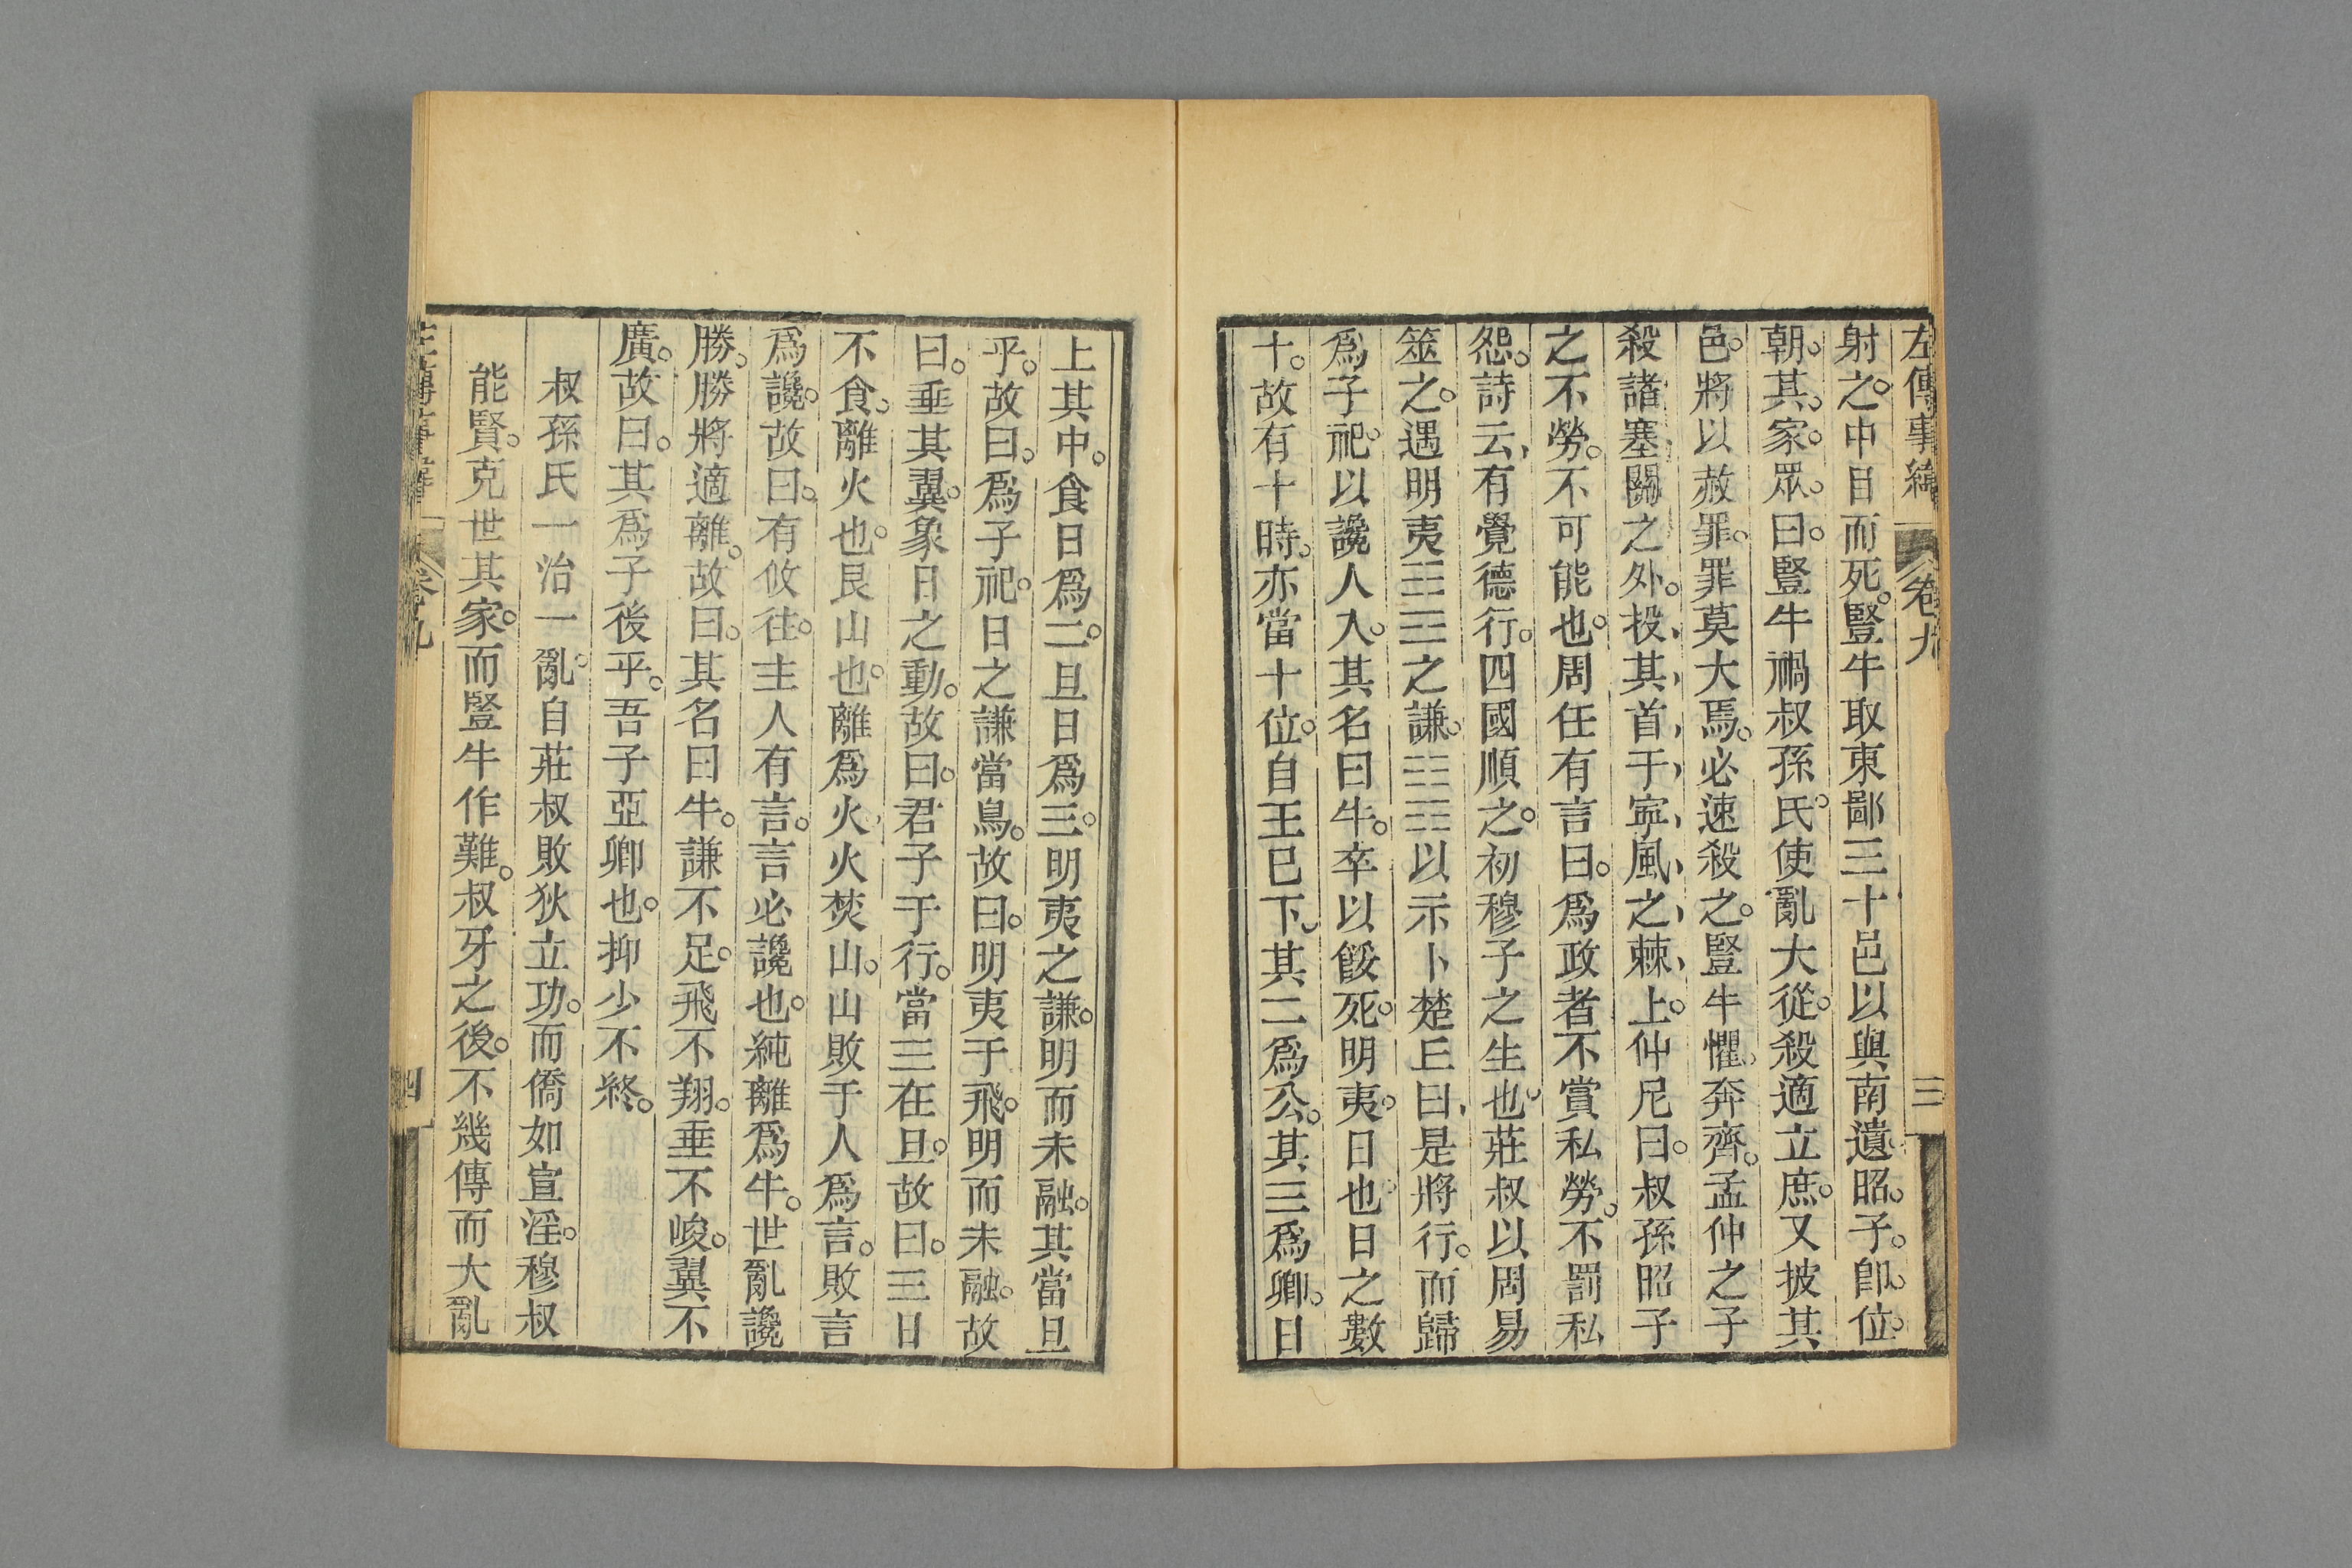 左傳事緯 卷九 三
射之。中目而死。豎牛取東鄙三十邑以與南遺。昭。子。卽。位。
朝。其。家。眾。曰。豎牛禍叔孫氏。使亂大從。殺適立庶。又披其
邑。將以赦罪。罪莫大焉。必速殺之。豎牛懼。奔齊。孟仲之子
殺諸塞關之外。投、其、首、于、寧、風、之、棘、上。仲尼曰。叔孫昭子
之不勞。不可能也。周任有言曰。爲政者不賞私勞。不罰私
怨。詩云、有覺德行。四國順之。初穆子之生也。莊叔以周易
筮之。遇明夷䷣之謙。䷎以示卜楚丘曰、是將行。而歸
爲子祀。以讒人入。其名曰牛。卒以餒死。明夷。日也。日之數
十。故有十時。亦當十位。自王已下。其二爲公。其三爲卿。日
上其中。食日爲二。旦日爲三。明夷之謙。明而未融。其當旦
乎。故曰。爲子祀。日之謙當鳥。故曰。明夷于飛。明而未融。故
曰。垂其翼。象日之動。故曰。君子于行。當三在旦。故曰。三日
不食。離火也。艮山也。離爲火、火焚山。山敗于人爲言。敗言
爲讒。故曰。有攸往。主人有言。言必讒也。純離爲牛。世亂讒
勝。勝將適離。故曰。其名曰牛。謙不足。飛不翔。垂不峻。翼不
廣。故曰。其爲子後乎。吾子亞卿也。抑少不終。
叔孫氏一治一亂。自莊叔敗狄立功。而僑如宣淫。穆叔
能賢。克世其家。而豎牛作難。叔牙之後。不幾傳而大亂
卷九 四